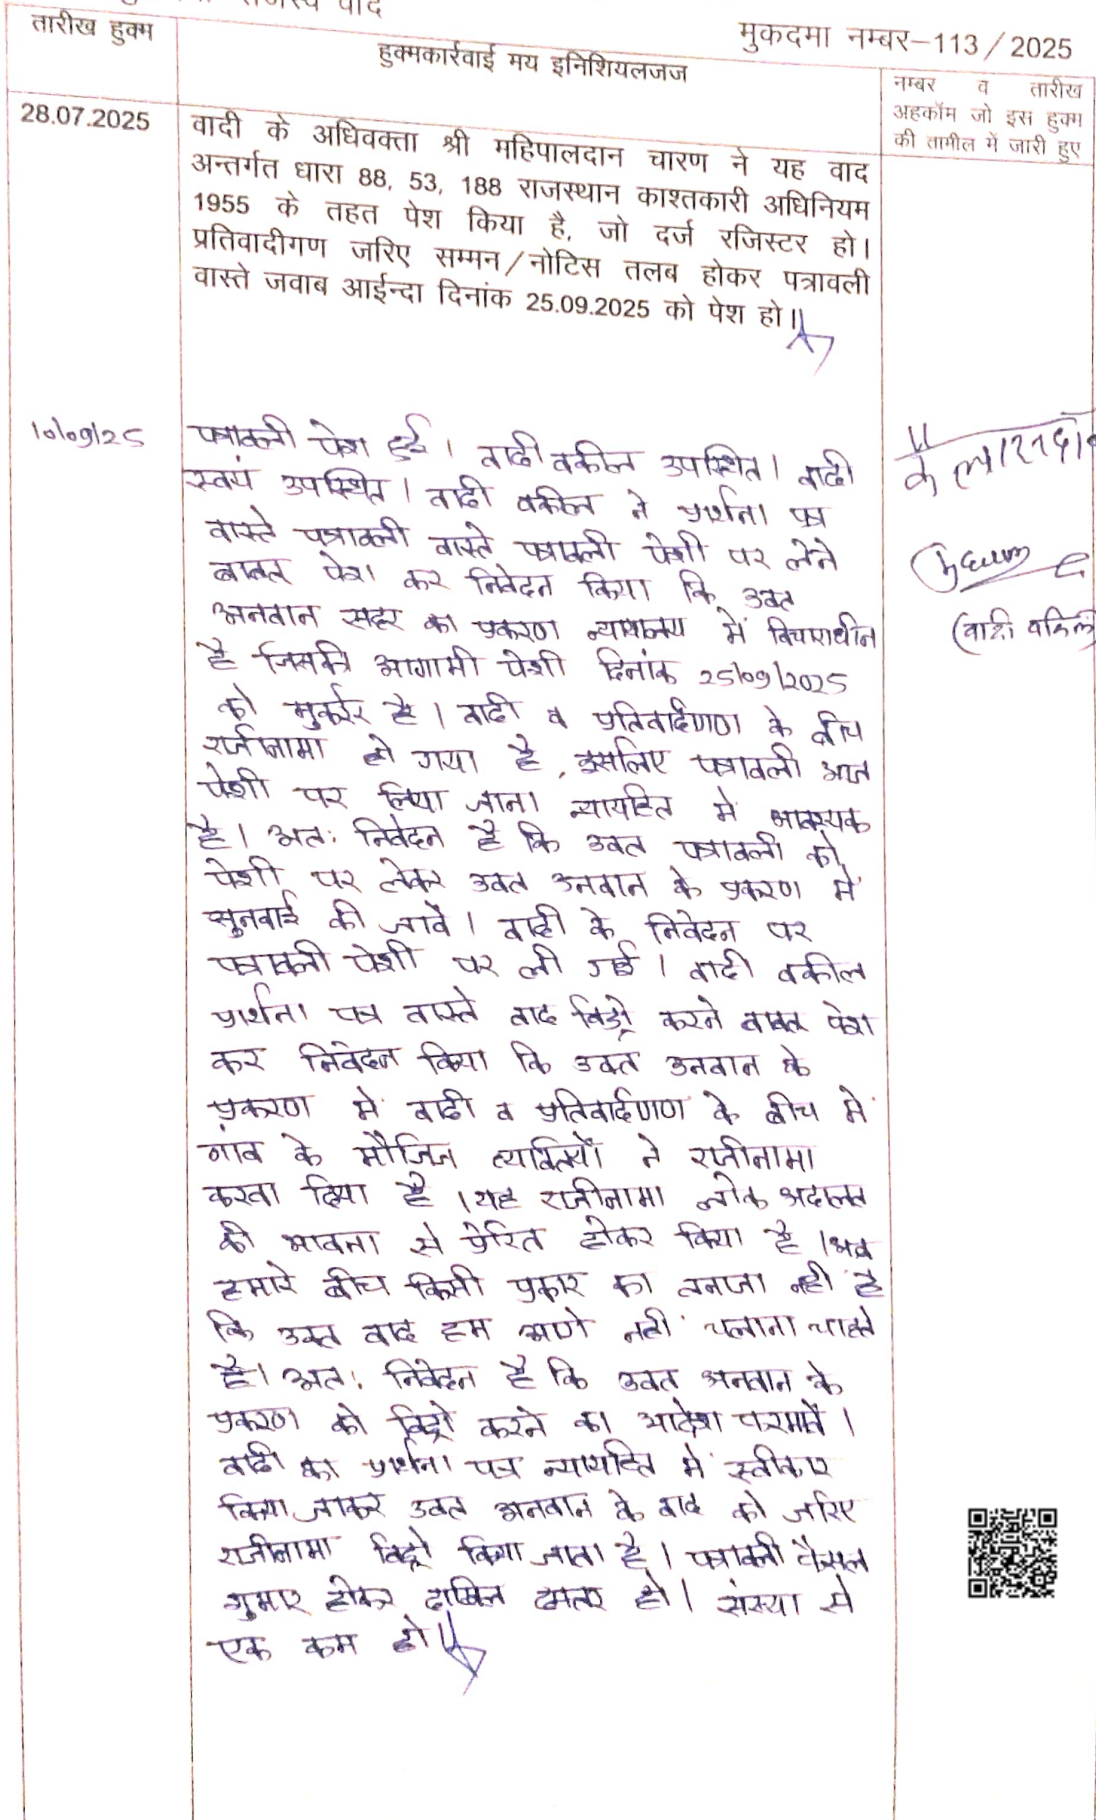 राजस्व वाद
मुकदमा नम्बर–113 / 2025
तारीख हुक्म
हुक्मकार्रवाई मय इनिशियलजज
नम्बर व तारीख
अहकॉम जो इस हुक्म
की तामील में जारी हुए
28.07.2025
वादी के अधिवक्ता श्री महिपालदान चारण ने यह वाद
अन्तर्गत धारा 88, 53, 188 राजस्थान काश्तकारी अधिनियम
1955 के तहत पेश किया है, जो दर्ज रजिस्टर हो।
प्रतिवादीगण जरिए सम्मन/नोटिस तलब होकर पत्रावली
वास्ते जवाब आईन्दा दिनांक 25.09.2025 को पेश हो।
10/09/25
पत्रावली पेश हुई। वादी वकील उपस्थित। वादी
स्वयं उपस्थित। वादी वकील ने प्रार्थना पत्र
वास्ते पत्रावली वास्ते पत्रावली पेशी पर लेने
बाबत पेश कर निवेदन किया कि उक्त
अनवान सदर का प्रकरण न्यायालय में विचाराधीन
है जिसकी आगामी पेशी दिनांक 25/09/2025
को मुकर्रर है। वादी व प्रतिवादीगण के बीच
राजीनामा हो गया है, इसलिए पत्रावली आज
पेशी पर लिया जाना न्यायहित में आवश्यक
है। अतः निवेदन है कि उक्त पत्रावली को
पेशी पर लेकर उक्त उनवान के प्रकरण में
सुनवाई की जावें। वादी के निवेदन पर
पत्रावली पेशी पर ली गई। वादी वकील
प्रार्थना पत्र वास्ते वाद विड्रो करने बाबत पेश
कर निवेदन किया कि उक्त उनवान के
प्रकरण में वादी व प्रतिवादीगण के बीच में
गांव के मौजिज व्यक्तियों ने राजीनामा
करवा दिया है। यह राजीनामा लोक अदालत
की भावना से प्रेरित होकर किया है। अब
हमारे बीच किसी प्रकार का तनाजा नहीं है
कि उक्त वाद हम आगे नहीं चलाना चाहते
है। अतः निवेदन है कि उक्त अनवान के
प्रकरण को विड्रो करने का आदेश फरमावें।
वादी का प्रार्थना पत्र न्यायहित में स्वीकार
किया जाकर उक्त अनवान के वाद को जरिए
राजीनामा विड्रो किया जाता है। पत्रावली फैसल
शुमार होकर दाखिल दफ्तर हो। संख्या से
एक कम हो।
(वादी वकिल)